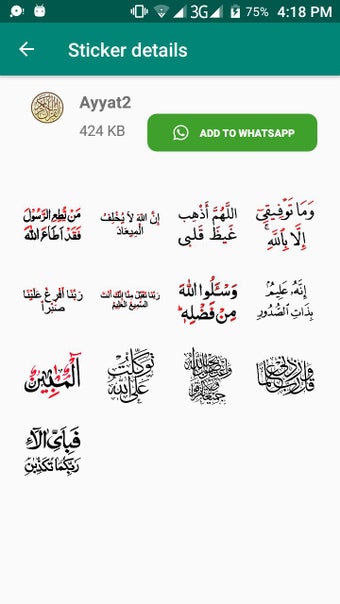 75% 4:18 PM
3G
Sticker details
Ayyat2
424 KB
ADD TO WHATSAPP
وَمَا تَوْفِيقِي
إِلَّا بِاللَّهِ
اللَّهُمَّ أَذْهِب
غَيظَ قَلبي
إِنَّ اللهَ لاَ يُخْلِفُ
الْمِيعَادَ
مَنْ يُطِعِ الرَّسُولَ
فَقَدْ أَطَاعَ اللهَ
إِنَّهُ عَلِيمٌ
بِذَاتِ الصُّدُورِ
وَسْئَلُوا اللهَ
مِنْ فَضْلِهِ
رَبَّنَا تَقَبَّلْ مِنَّا إِنَّكَ أَنْتَ
السَّمِيعُ الْعَلِيمُ
رَبَّنَا أَفْرِغْ عَلَيْنَا
صَبْراً
وقل رب زدني علما
واعتصموا بحبل الله
جميعا ولا تفرقوا
توكلت
على الله
الْمُبِينُ
فَبِأَيِّ آلَاءِ
رَبِّكُمَا تُكَذِّبَنِ